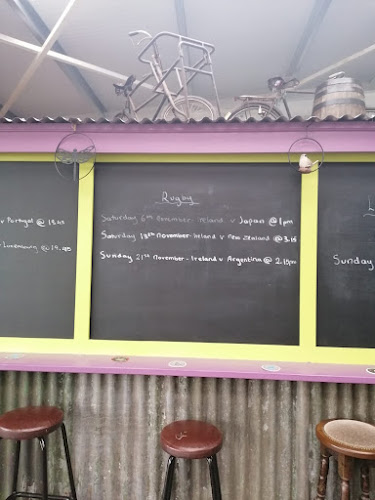 v Portugal @ 19.45
v Luxembourg @ 19.45
Rugby
Saturday 6th November - Ireland v Japan @ 1pm
Saturday 13th November - Ireland v New Zealand @ 3.15
Sunday 21st November - Ireland v Argentina @ 2.15pm
L
Sunday